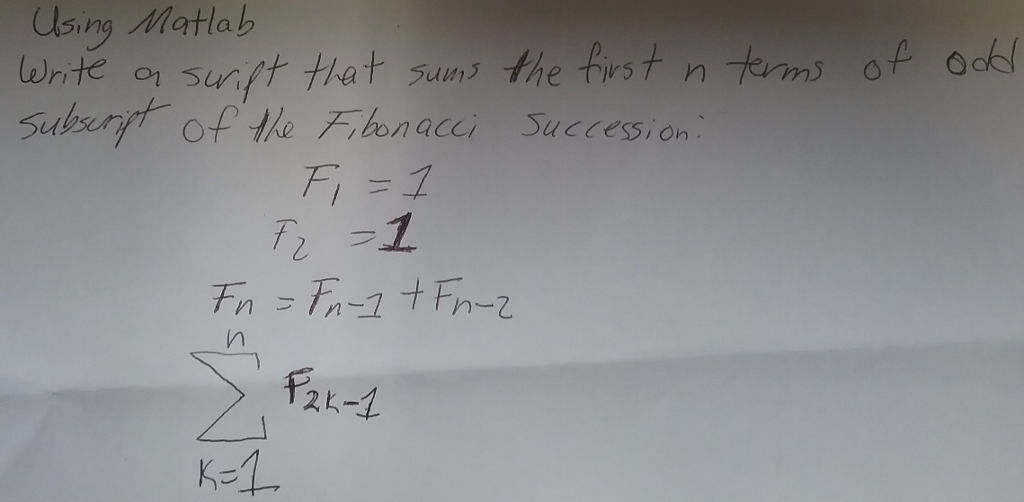 Using Matlab
Write a script that sums the first n terms of odd
subscript of the Fibonacci Succession:
F₁ = 1
F₂ = 1
Fn = Fn-1 + Fn-2
n
∑ F2K-1
K=1